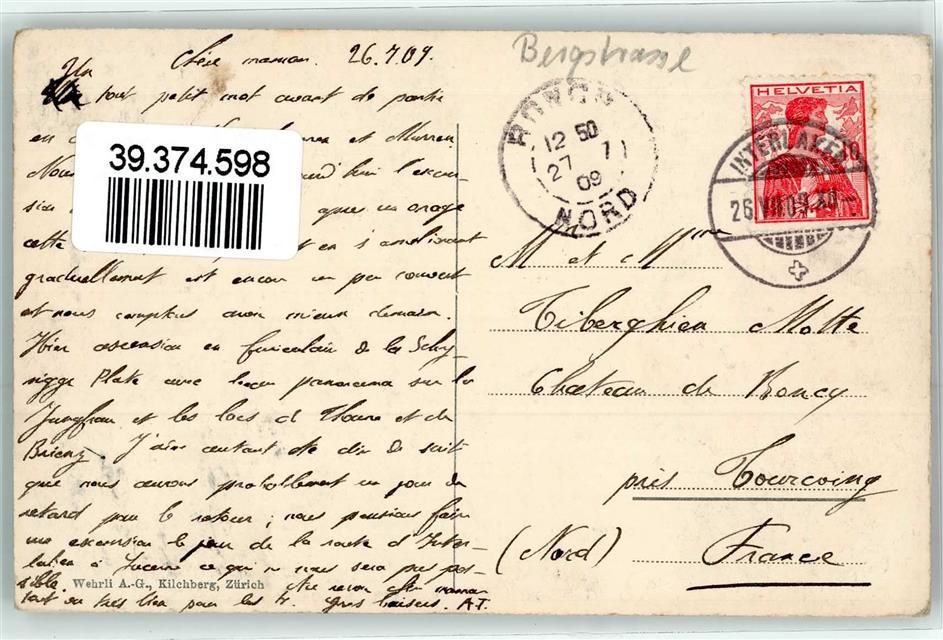 Chère maman. 26.7.09.
Bergstrasse
Un tout petit mot avant de partir
en et Murren
Nous l'excur-
sion après un orage
cette en s'améliorant
graduellement est encore un peu couvert
et nous comptons avoir mieux demain.
Hier ascension en funiculaire de la Schy-
nigge Platte avec beau panorama sur la
Jungfrau et les lacs de Thoune et de
Brienz. J'aime autant te dire de suite
que nous aurons probablement un jour de
retard pour le retour; nous pensions faire
une excursion le jour de la route d'Inter-
laken à Lucerne ce qui ne nous sera pas pos-
sible. Au revoir maman
tout va très bien pour les tr. Gros baisers. A.T.
Wehrli A.-G., Kilchberg, Zürich
39.374.598
RONCQ
12 50
27 7
09
NORD
HELVETIA
INTERLAKEN
26.VII.09.
M et Mme
Tiberghien Motte
Chateau de Roncq
près Tourcoing
(Nord) France